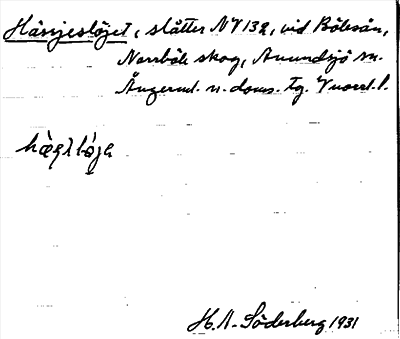 Häsjesløjet, slåtter NV 132, vid Bölesån,
Norrböle skog, Anundsjö sn.
Ångerml. n. doms. tg. Vnorrl. l.
H. A. Söderberg 1931